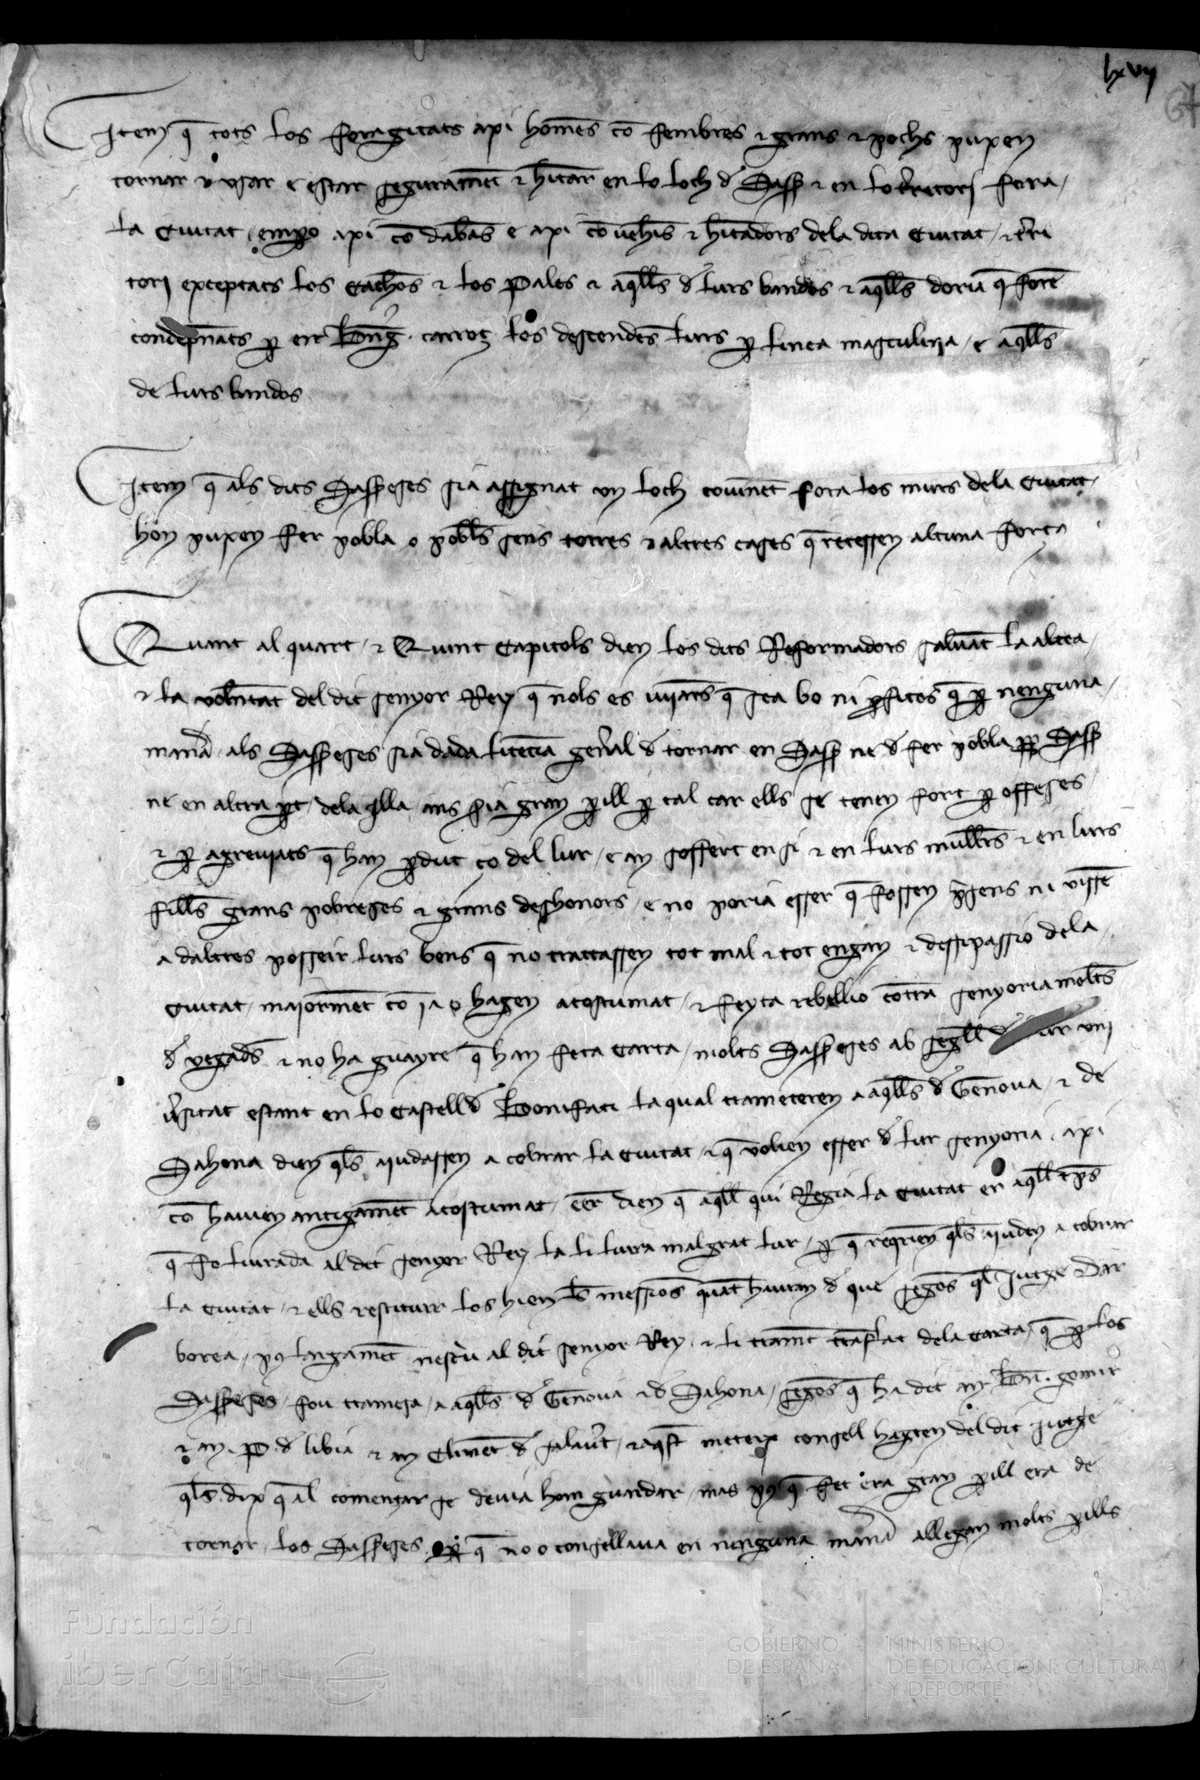 lxvii
67
Item q̄ tots los foragitats axi homēs cō fembres ⁊ grans ⁊ pochs puxen
tornar usar e estar seguramēt ⁊ hītar en lo loch d' Sasser ⁊ en lo t'ritori fora
la Ciutat, emꝑo axi cō dabās e axi cō vehīs ⁊ hītadors dela dita Ciutat, ⁊ t'ri
tori exceptats los Cachōs ⁊ los Pales ⁊ aq̄lls d' lurs bandos ⁊ aq̄lls doria q̄ forē
condepnats ꝑ en b̄ng̃. carroç los descendēts lurs ꝑ linea masculina, e aq̄lls
de lurs bandos
Item q̄ als dits Sassesēs sia assignat un loch covinēt fora los murs dela Ciutat,
hon puxen fer pobla o pobl̄s sens torres ⁊ altres cases q̄ retessen alcuna força
Quant al quart, ⁊ Quint Capitols dien los dits Reformadors salvāt la altea,
⁊ la volūtat del dit senyor Rey q̄ nols es viiares q̄ sea bo ni ꝓfitos q̄ ꝑ nenguna,
man'a als Sasseses sia dada licēcia gen'al d' tornar en Sasser ne d' fer pobla ꝓp Sasser
ne en altra ꝑt, dela Illa, ans sia gran ꝑill ꝑ tal car ells se tenen fort ꝑ offeses
⁊ ꝑ agreviats q̄ han ꝑdut ço del lur, e an soffert en si ⁊ en lurs mullērs ⁊ en lurs
fills grans pobreses ⁊ grans desonors, e no poria esser q̄ fossen p'sens ni vissē
a daltres posseir lurs bens q̄ no tractassen tot mal ⁊ tot engan ⁊ dessipassio dela
Ciutat, maiormēt cō ia o hagen acostumat, ⁊ feyta rebellio cōtra senyoria moltes
d' vegades ⁊ no ha guayre q̄ han feta carta, molts Sasseses ab segell d' lur uni
v'sitat estant en lo Castell d' Bonifaci la qual trameteren a aq̄lls d' Gēnova, ⁊ de
Sahona dien q̄ls aiudassen a cobrar la Ciutat, ⁊ q̄ volien esser d' lur senyoria, axi
cō havien antigamēt acostumat, dien q̄ aq̄ll qui Regia la Ciutat en aq̄ll tp̄s
q̄ fo liurada al dit senyor Rey la li liura malgrat lur, ꝑ q̄ req̄rien q̄ls aiuden a cobrar
la Ciutat, ⁊ ells restituir los hien messios quāt havian d' que segōs q̄l Jutge Dar
borea, pus largamēt al dit senyor Rey, ⁊ li tramēt traslat dela Carta, q̄ ꝑ los
Sasseses, fou tramesa, a aq̄lls d' Gēnova ⁊ d' Sahona, segōs q̄ ha dit ēn b̄n. gomir
⁊ en. P. d' libia ⁊ en Climēt d' salav't, ⁊ aq̄st meteix consell hagren del dit Jutge
q̄ls dix q̄ al començar se devia hom guardar, mas pus q̄ fet era gran ꝑill era de
tornar, los Sasseses. ꝑ q̄ no o consellava en nenguna man'a allegan molts ꝑills
Fundación
iberCaja
GOBIERNO
DE ESPAÑA
MINISTERIO
DE EDUCACIÓN, CULTURA
Y DEPORTE